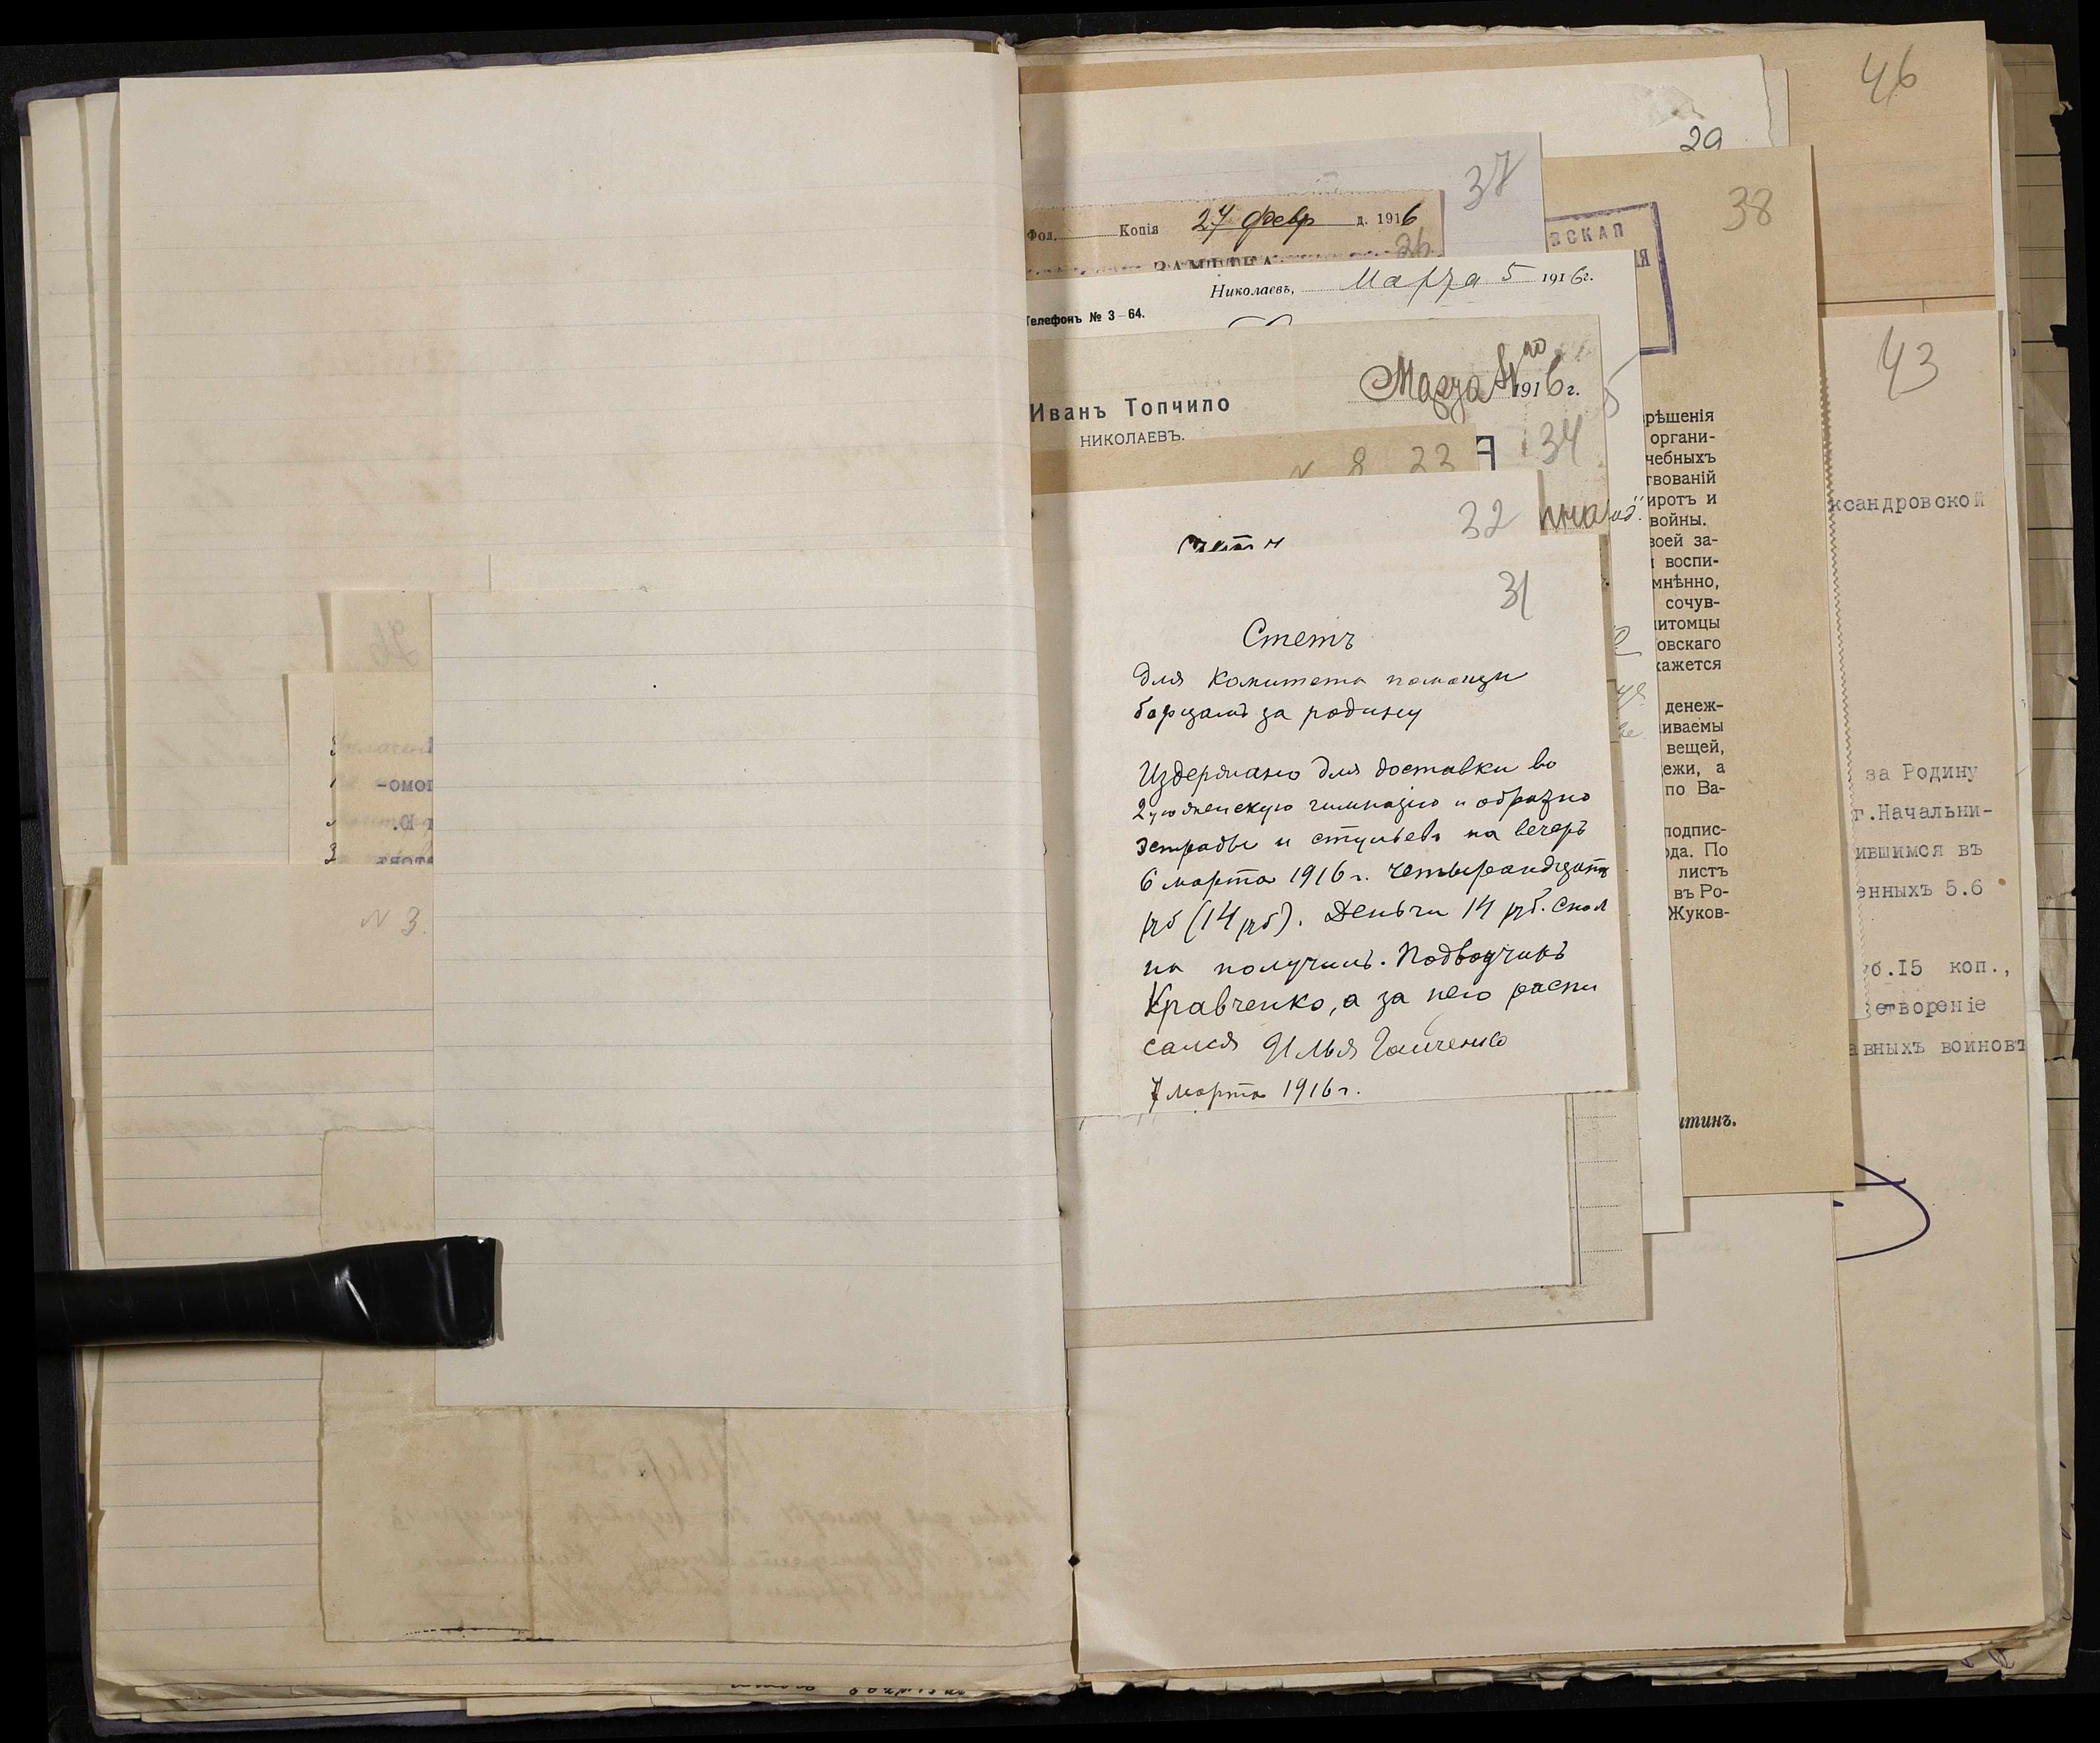 46
29
37
38
Фол. Копія 27 февр д. 1916
26
ЗАМѢТКА
ВСКАЯ
Николаевъ, Марта 5 1916г.
Телефонъ № 3-64.
Марта 4го 1916 г.
Иванъ Топчило
НИКОЛАЕВЪ.
34
43
N 8 33
А
32
Счетъ
31
Счетъ
Для Комитета помощи
борцамъ за родину
Издержано для доставки во
2ую женскую гимназію и обратно
эстрады и стульевъ на вечеръ
6 марта 1916 г. четырнадцать
руб (14 руб). Деньги 14 руб. спол
на получилъ. Подводчикъ
Кравченко, а за него распи
сался Илья
7 марта 1916 г.
рѣшенія
органи-
чебныхъ
твованій
иротъ и
войны.
воей за-
и воспи-
мнѣнно,
сочув-
питомцы
овскаго
кажется
денеж-
иваемы
вещей,
ежи, а
по Ва-
подпис-
ода. По
листъ
въ Ро-
Жуков-
итинъ.
ксандровской
за Родину
г.Начальни-
ившимся въ
енныхъ 5.6
уб.15 коп.,
етвореніе
авныхъ воиновъ
26
помо-
Ю.
N 3.